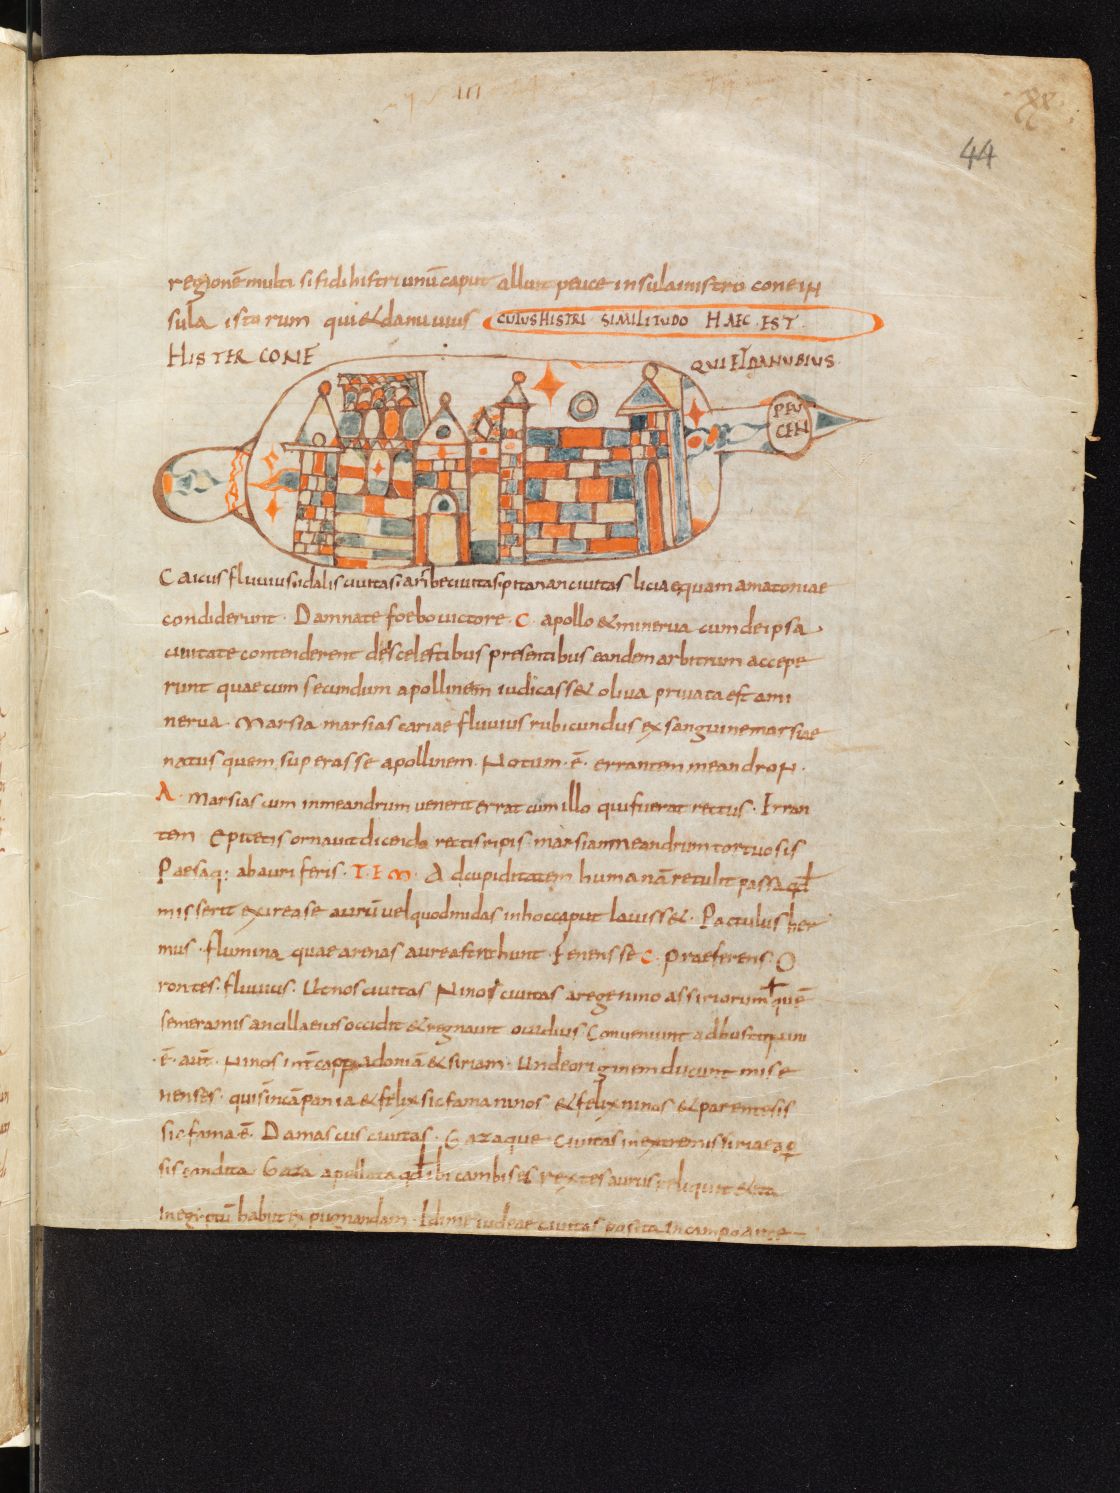 44
regionē multi si fidi histri unū caput alluit peuce insula in istro cone in
sula istorum qui & danuuius CUIUS HISTRI SIMILITUDO HAEC EST
HISTER CONE QUI ET DANUBIUS
PEU
CEN
Caicus fluuius idalis ciuitas ciuitas pitanan ciuitas licia equam amatoniae
condiderunt · Damnate foebo uictore · C · apollo & minerua cum de ipsa
ciuitate contenderent de scelestibus presentibus eandem arbitrium accepe
runt quae cum secundum apollinem iudicass& oliua priuata est a mi
nerua · Marsia marsias cariae fluuius rubicundus ex sanguine marsiae
natus quem superasse apollinem · Notum · ē · errantem meandron ·
A · Marsias cum in meandrum uenerit errat cum illo qui fuerat rectus · Erran
tem epitetis ornauit dicendo rectis ripis marsiam meandrum tortuosis
Paesaq: ab auriferis · T · I · M · Ad cupiditatem humanā retulit passa qđ
misserit ex irease aurū uel quod midas in hoc caput lauiss& · Pactulus her
mus · flumina quae arenas aurea · Tenensse C · praeferens · O
rontes · fluuius · Ut nos ciuitas Ninos ciuitas a rege nino assiriorum quē
semeramis ancilla eius occidit & regnauit ouidius Conueniunt ad busta nini
· ē · aut̄ · Ninos int̄ cappadoniā & siriam · Unde originem ducunt mise
nenses · qui s in cāpania & felix sic fama ninos · & felix ninos & parentesis
sic fama · ē · Damascus ciuitas · Gazaque ciuitas in extremis siriae a
sis condita Gaza apellata qđ ibi cambises rex tesaurus reliquit & ta
in egiptū habuit expugnandam · Idime iudeae ciuitas posita in campo ante